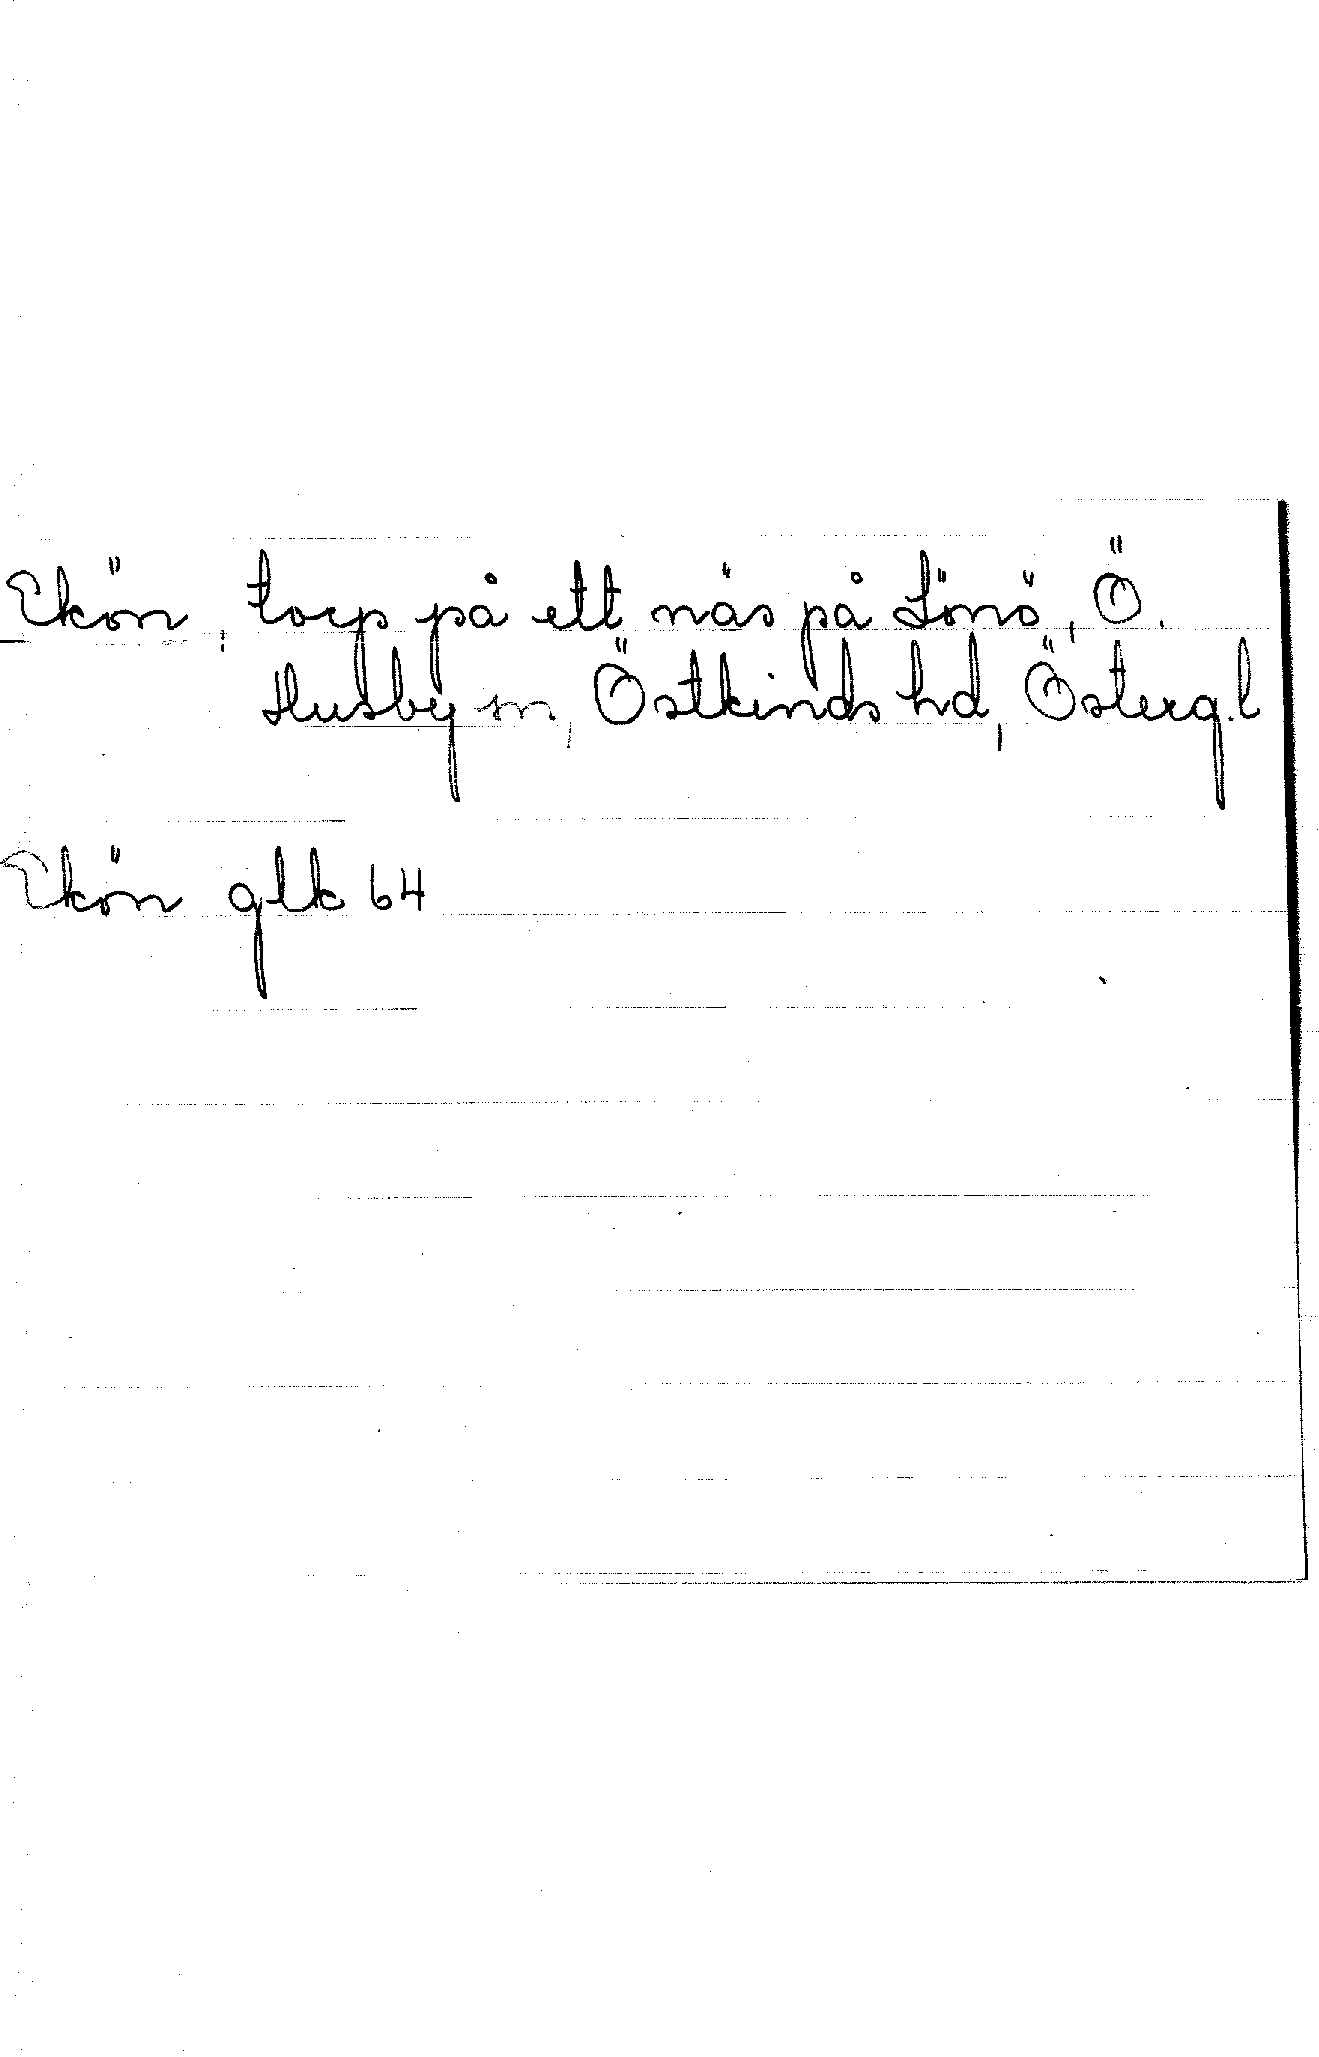 Ekön, torp på ett näs på Lönö, Ö.
Husby sn, Östkinds hd,Österg.l
Ekön glk 64